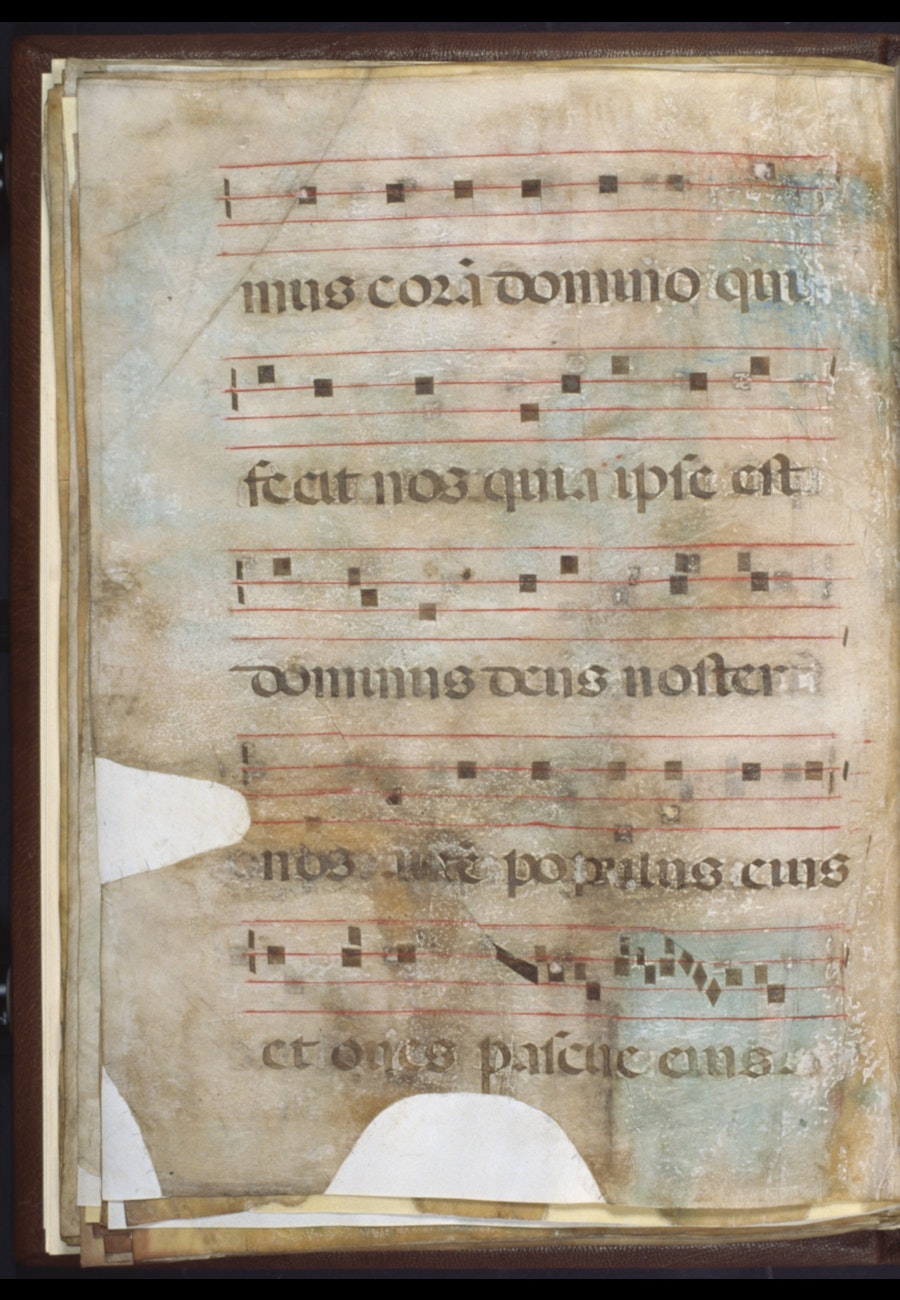 mus corã domino qui
fecit nos quia ipse est
dominus deus noster
nos autē populus eius
et oues pascue eius.